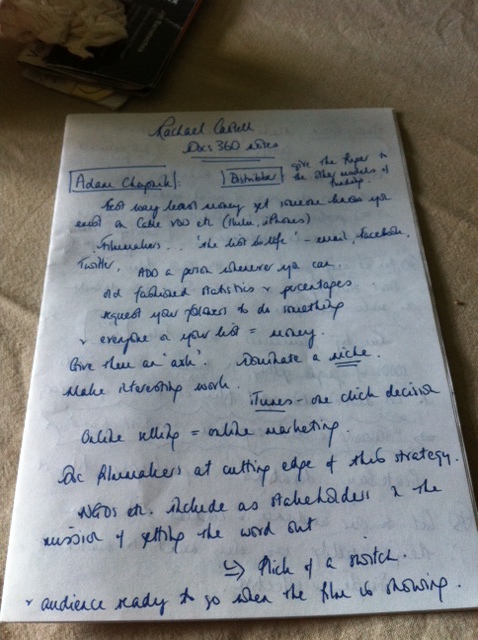 Rachael Castell
Docs 360 notes
Adam Chapnick: Distribber give the finger to
the other models of
funding.
Best way least money get someone knows you
exist on Cable VOD etc (Hulu, iPhones)
Filmmakers... 'the list is life' - email, facebook,
Twitter. ADD a person wherever you can.
old fashioned statistics & percentages
request your followers to do something
& everyone on your list = money.
Give them an 'ask'. Dominate a niche.
Make interesting work.
iTunes - one click decision
Online selling = online marketing.
Doc filmmakers at cutting edge of this strategy.
NGOs etc. include as stakeholders in the
mission of getting the word out
↳ flick of a switch.
& audience ready to go when the film is showing.